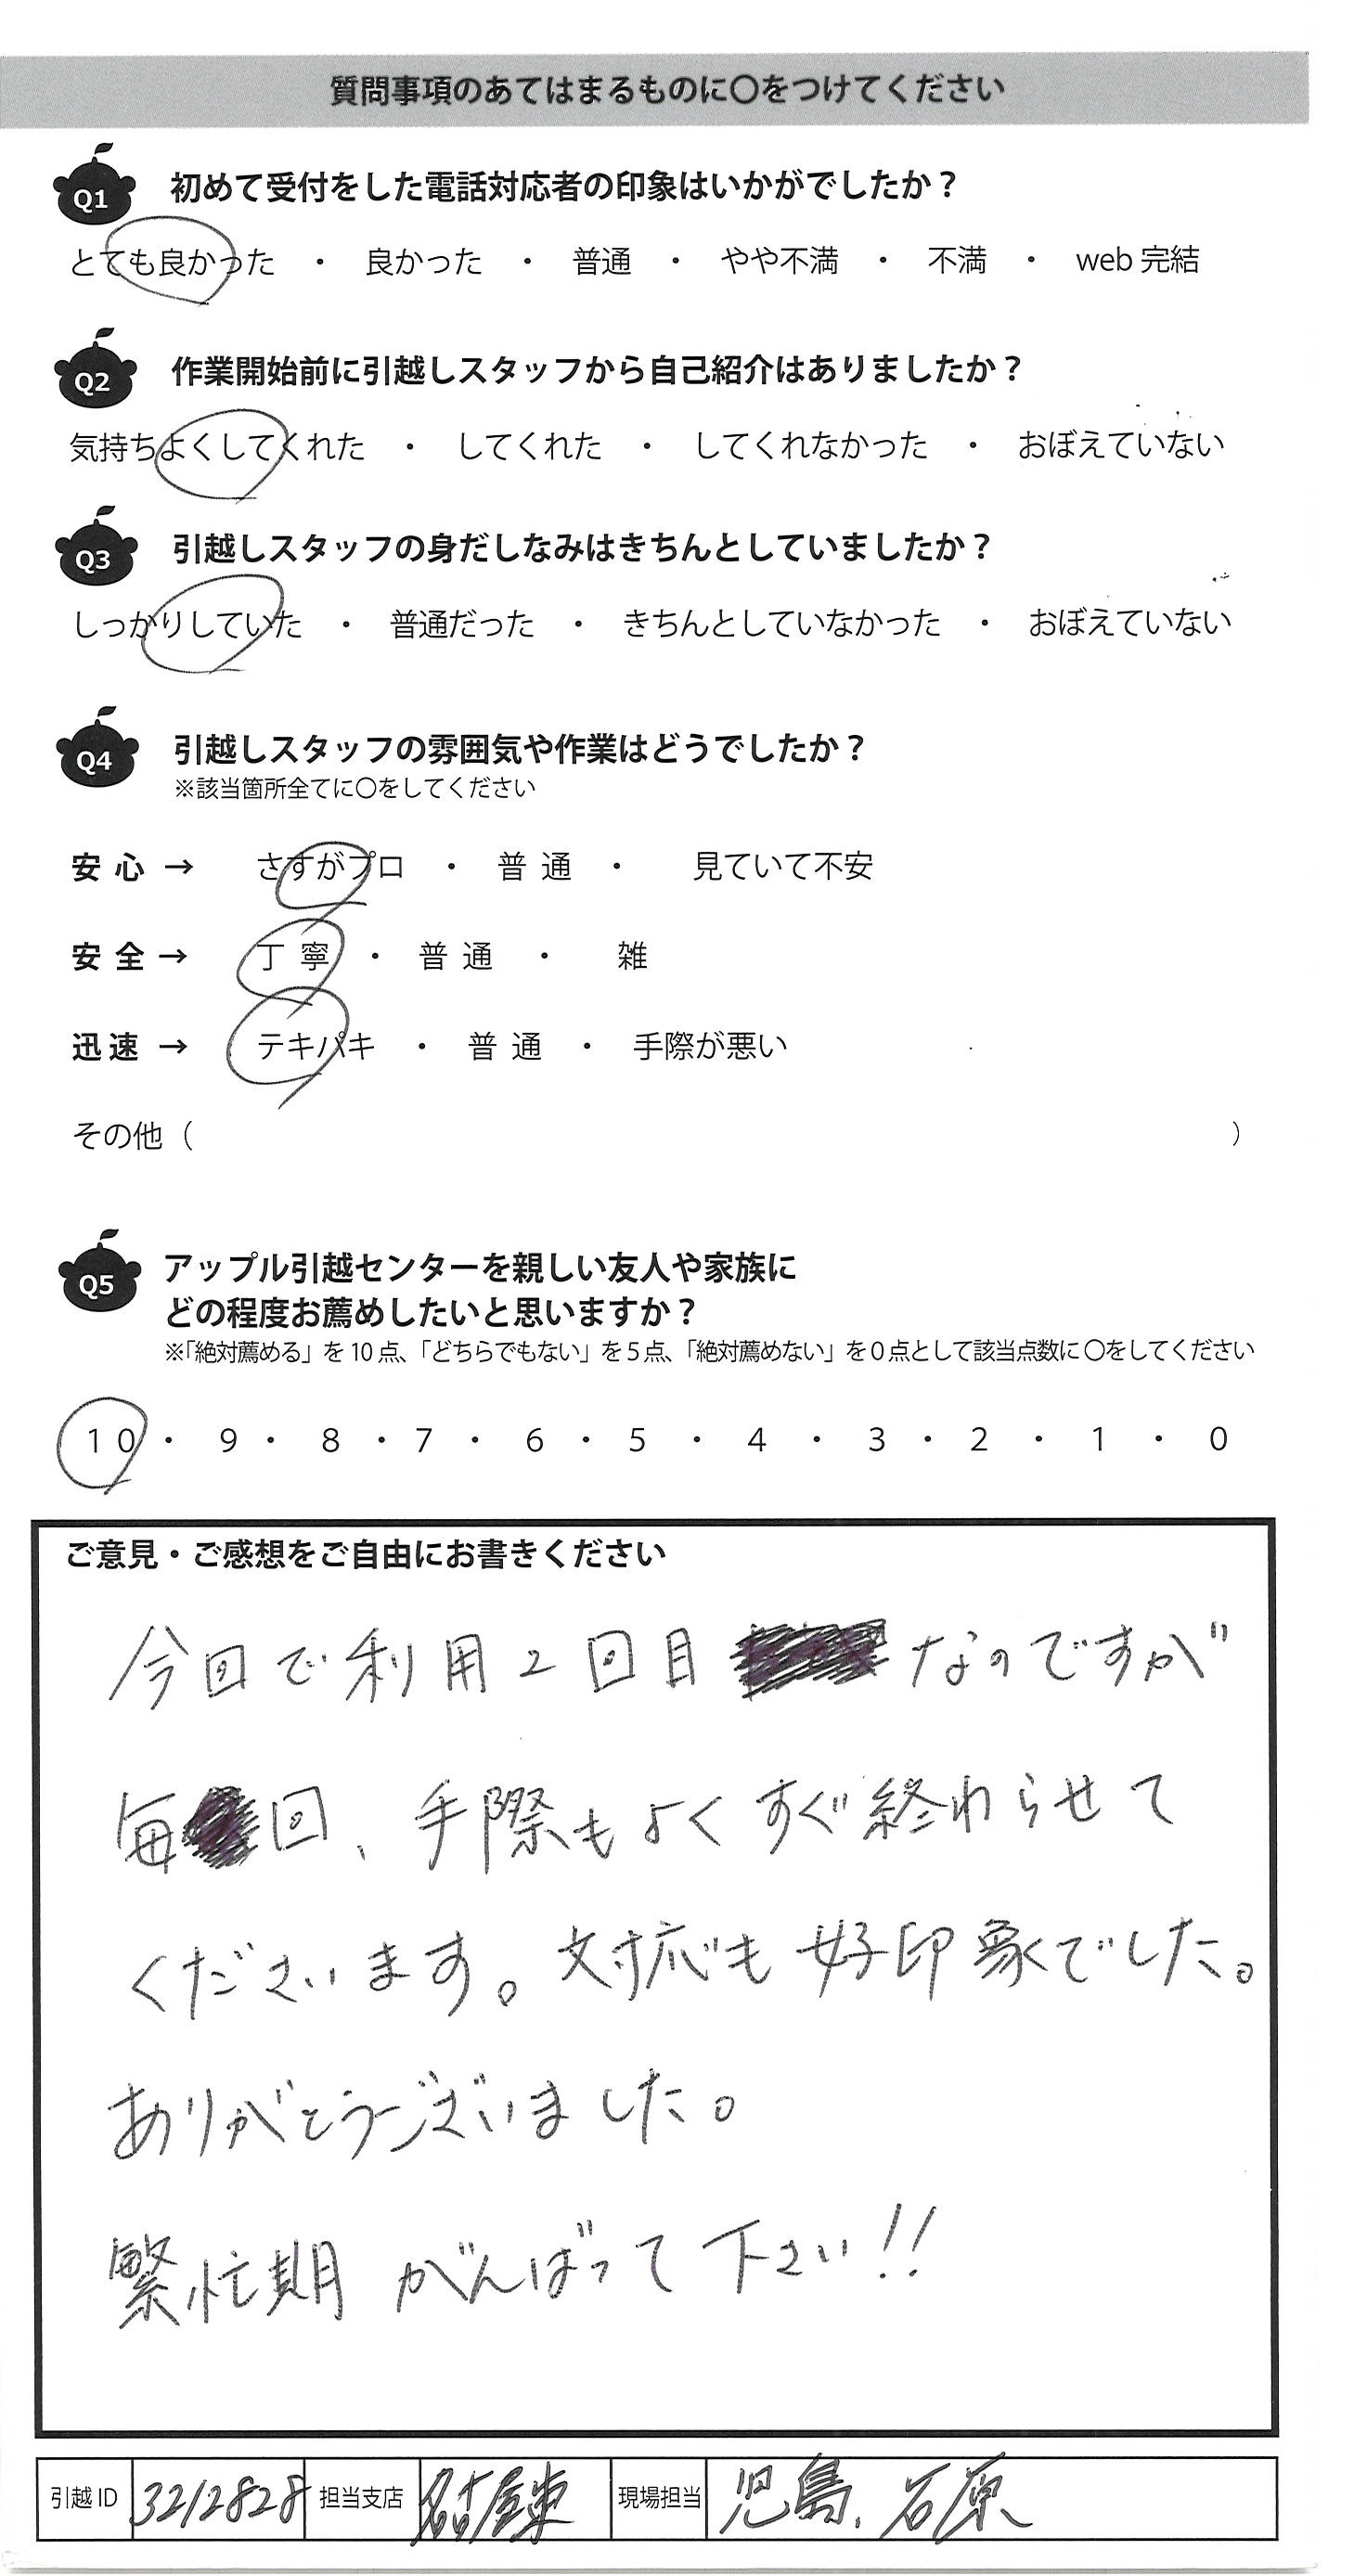 質問事項のあてはまるものに〇をつけてください
Q1 初めて受付をした電話対応者の印象はいかがでしたか？
とても良かった ・ 良かった ・ 普通 ・ やや不満 ・ 不満 ・ web 完結
Q2 作業開始前に引越しスタッフから自己紹介はありましたか？
気持ちよくしてくれた ・ してくれた ・ してくれなかった ・ おぼえていない
Q3 引越しスタッフの身だしなみはきちんとしていましたか？
しっかりしていた ・ 普通だった ・ きちんとしていなかった ・ おぼえていない
Q4 引越しスタッフの雰囲気や作業はどうでしたか？
※該当箇所全てに〇をしてください
安心 → さすがプロ ・ 普通 ・ 見ていて不安
安全 → 丁寧 ・ 普通 ・ 雑
迅速 → テキパキ ・ 普通 ・ 手際が悪い
その他（ ）
Q5 アップル引越センターを親しい友人や家族に
どの程度お薦めしたいと思いますか？
※「絶対薦める」を10点、「どちらでもない」を5点、「絶対薦めない」を0点として該当点数に〇をしてください
10 ・ 9 ・ 8 ・ 7 ・ 6 ・ 5 ・ 4 ・ 3 ・ 2 ・ 1 ・ 0
ご意見・ご感想をご自由にお書きください
今回で利用2回目なのですが
毎回、手際もよくすぐ終わらせて
くださいます。対応も好印象でした。
ありがとうございました。
繁忙期がんばって下さい!!
引越ID 3212828 担当支店 名古屋東 現場担当 児島、石原